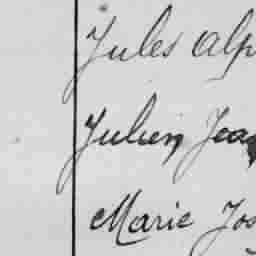 Jules Alp
Julien Jea
Marie Jos